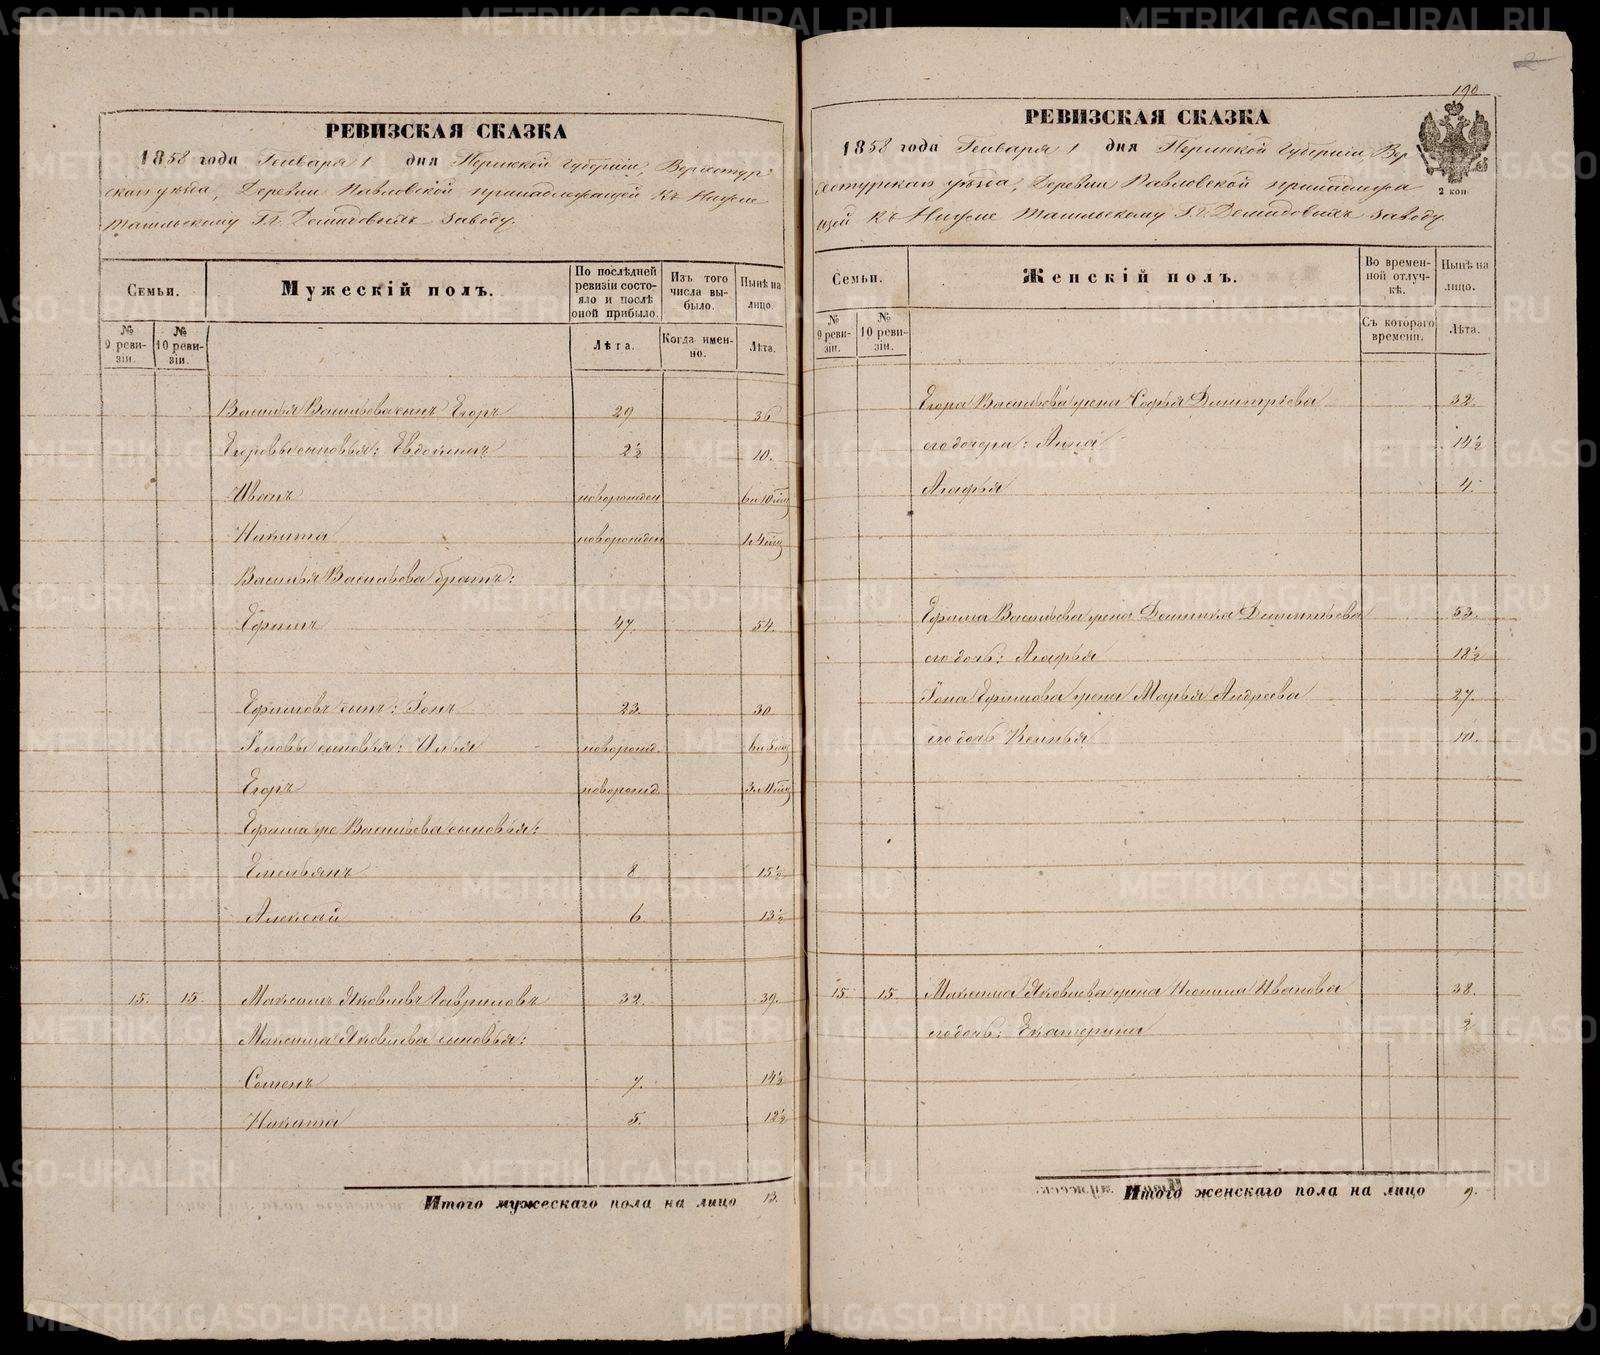 190
РЕВИЗСКАЯ СКАЗКА
1858 года Генваря 1 дня Пермской Губернiи, Верхотур-
скаго уѣзда, Деревни Павловской принадлежащей къ Нижне
Тагильскому Г.г. Демидовыхъ заводу.
Семьи.
Мужескій полъ.
По послѣдней ревизіи состояло и послѣ оной прибыло.
Изъ того числа выбыло.
Нынѣ на лицо.
№ 9 ревизіи.
№ 10 ревизіи.
Лѣта.
Когда именно.
Лѣта.
Василья Васильева сынъ Егоръ 29 36
Егоровы сыновья: Евдокимъ 2½ 10.
Иванъ новорожден 6 и 10 мѣц
Никита новорожден 1 и 4 мѣц
Василья Васильева братъ:
Ефимъ 47. 54.
Ефимовъ сынъ: Іонъ 23. 30
Іоновы сыновья: Илья новорожд. 6 и 5 мц
Егоръ новорожд. 3 и 11 мц
Ефима же Васильева сыновья:
Емельянъ 8 15½
Алексѣй 6. 13½
15. 15. Максимъ Яковлевъ Гавриловъ 32. 39.
Максима Яковлева сыновья:
Семенъ 7. 14½
Никита 5. 12½
Итого мужескаго пола на лицо 13.
РЕВИЗСКАЯ СКАЗКА
1858 года Генваря 1 дня Пермской Губернiи, Вер
хотурскаго уѣзда, Деревни Павловской принадлежа
щей къ Нижне Тагильскому Г.г. Демидовыхъ заводу.
2 коп
Семьи.
Женскій полъ.
Во временной отлучкѣ.
Нынѣ на лицо.
№ 9 ревизіи.
№ 10 ревизіи.
Съ котораго времени.
Лѣта.
Егора Васильева жена Софья Дмитріева 32.
его дочери: Анна 14½
Агафья 4.
Ефима Васильева жена 53.
его дочь: Агафья 18½
Іона Ефимова жена Марья Андреева 27.
его дочь Ксенья 10.
15. 15. Максима Яковлева жена Иванова 38.
его дочь: Екатерина
Итого женскаго пола на лицо 9.
METRIKI.GASO-URAL.RU